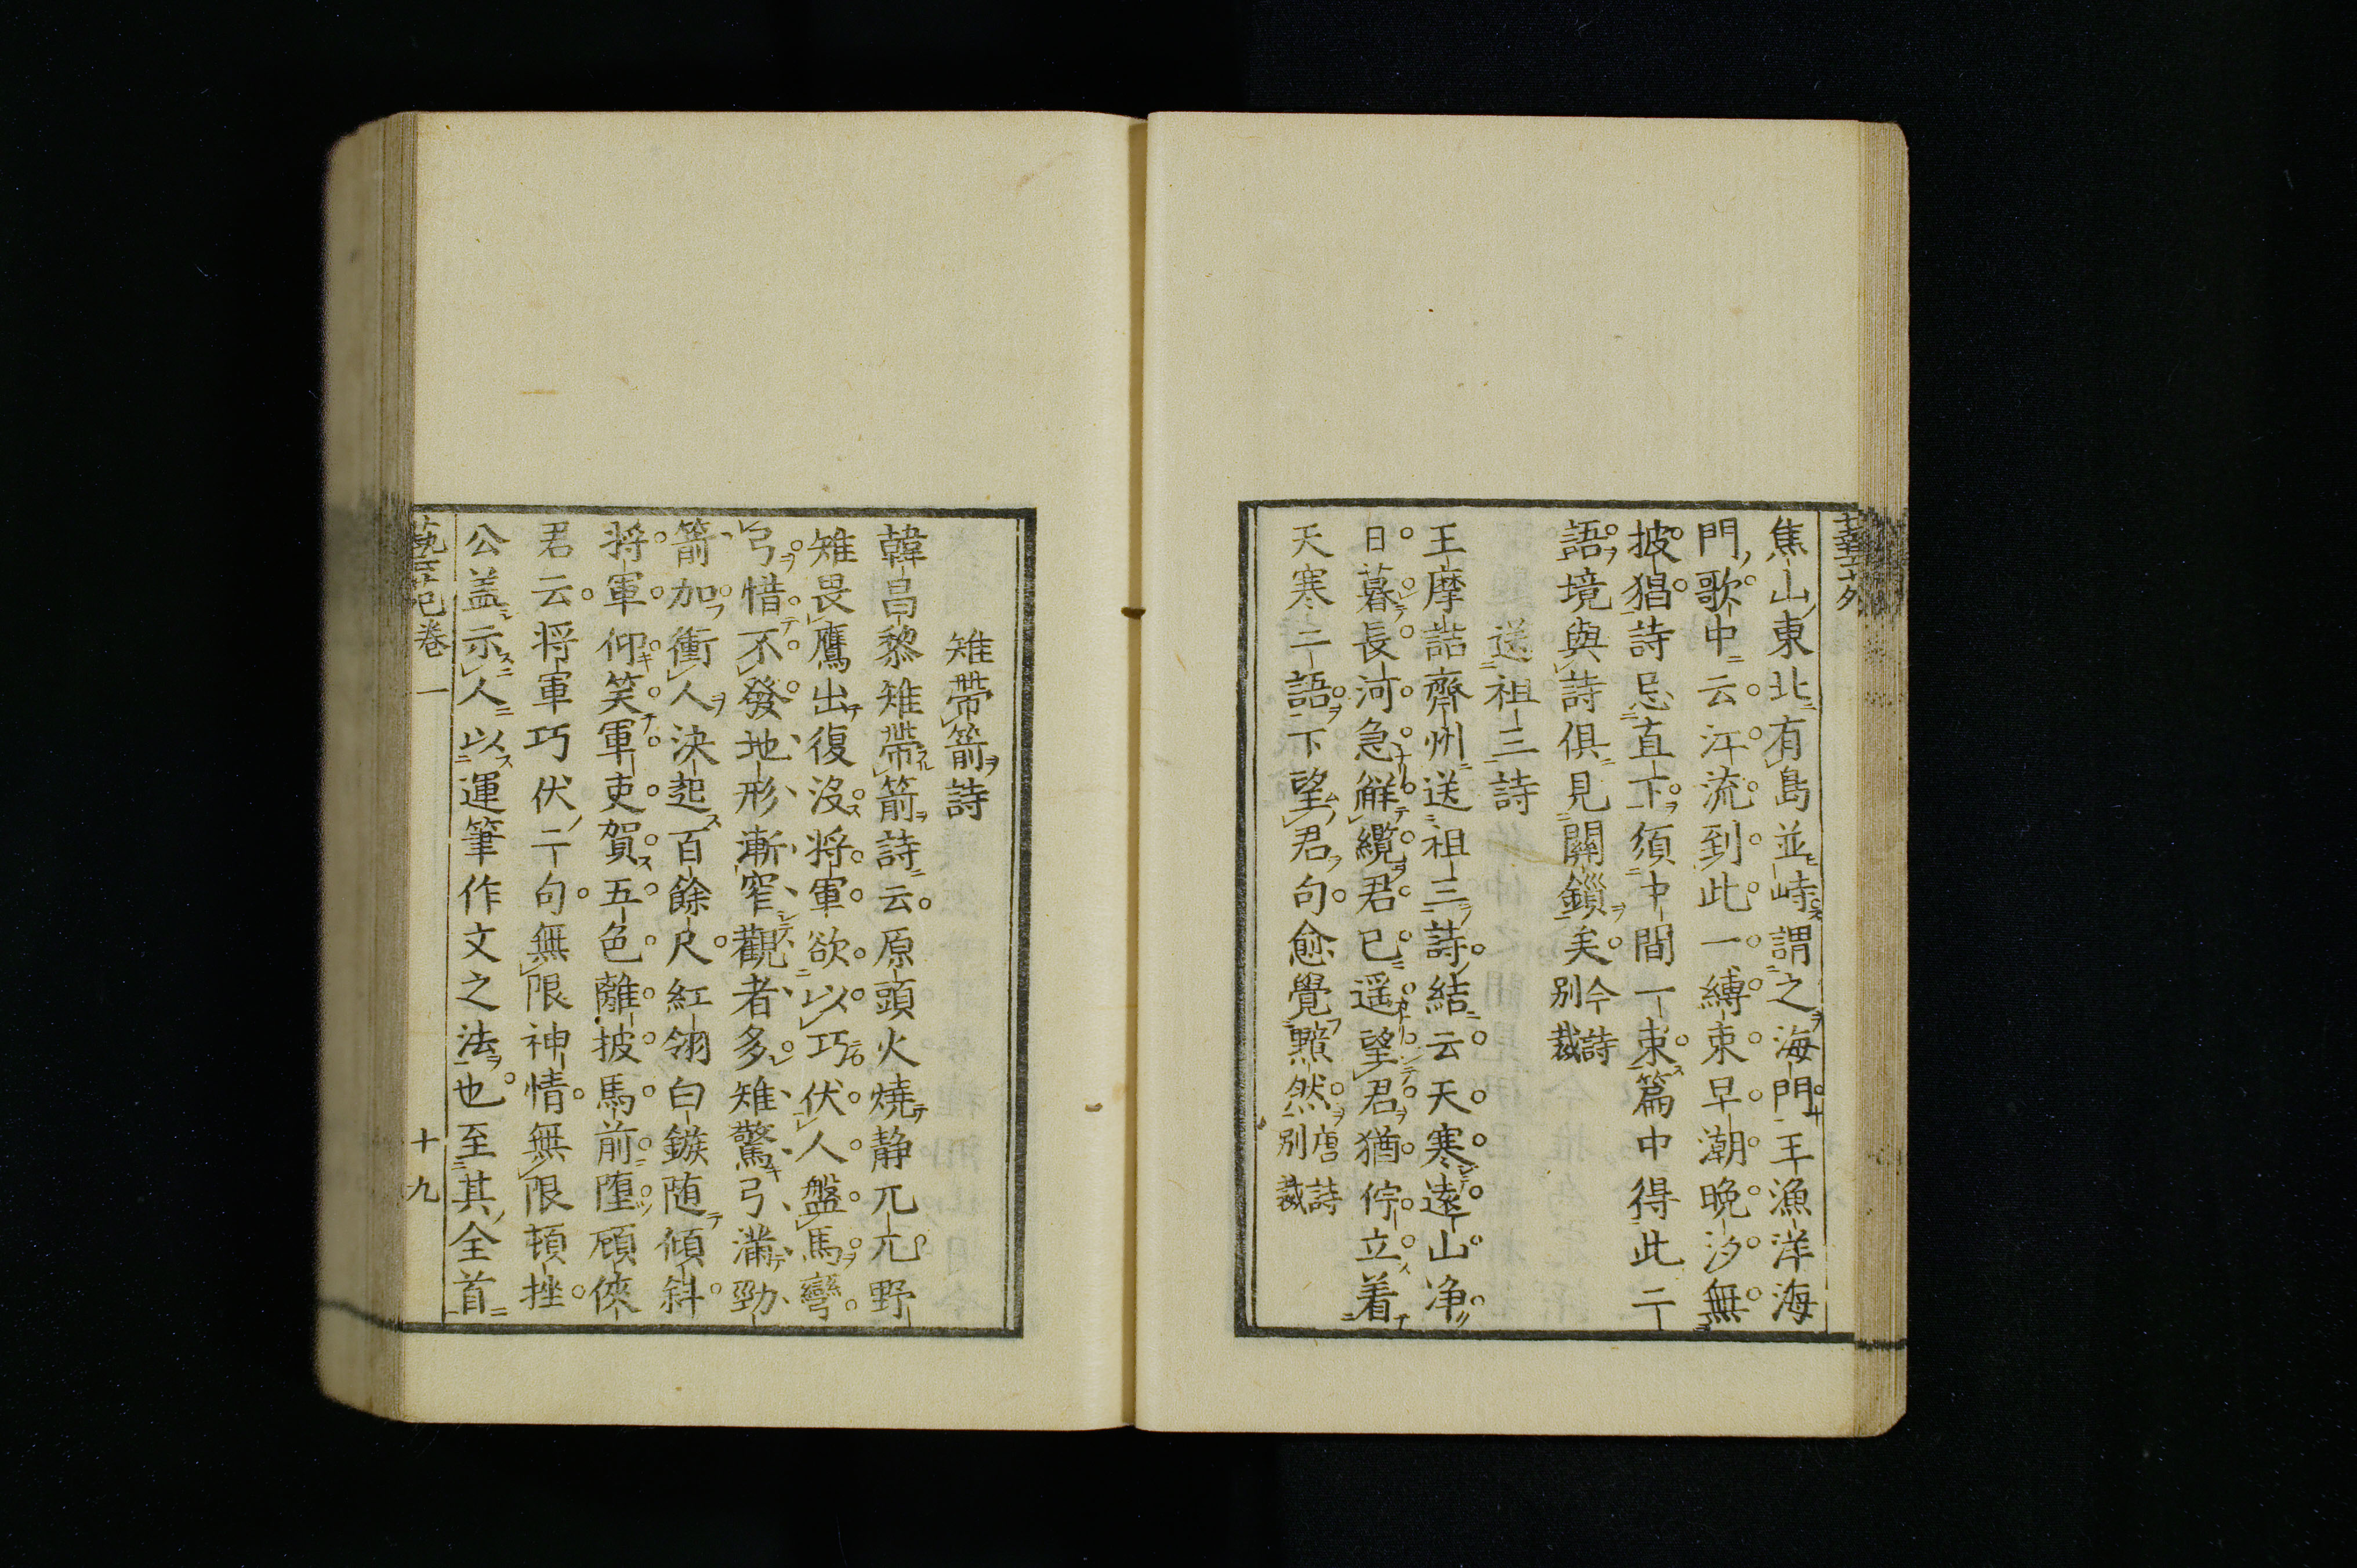 焦山東北有島並峙謂之海門王漁洋海
門歌中云江流到此一縛束早潮晩汐無
披猖詩忌直下須中間一束篇中得此二
語境與詩俱見關鎖矣今詩別裁
送祖三詩
王摩詰齊州送祖三詩結云天寒遠山浄
日暮長河急解纜君已遥望君猶佇立着
天寒二語下望君句愈覺黯然唐詩別裁
雉帶箭詩
韓昌黎雉帶箭詩云原頭火燒静兀兀野
雉畏鷹出復没将軍欲以巧伏人盤馬彎
弓惜不發地形漸窄觀者多雉驚弓滿勁
箭加衝人決起百餘尺紅翎白鏃随傾斜
将軍仰笑軍吏賀五色離披馬前墮顧俠
君云将軍巧伏二句無限神情無限頓挫
公盖示人以運筆作文之法也至其全首
藝苑卷一
十九